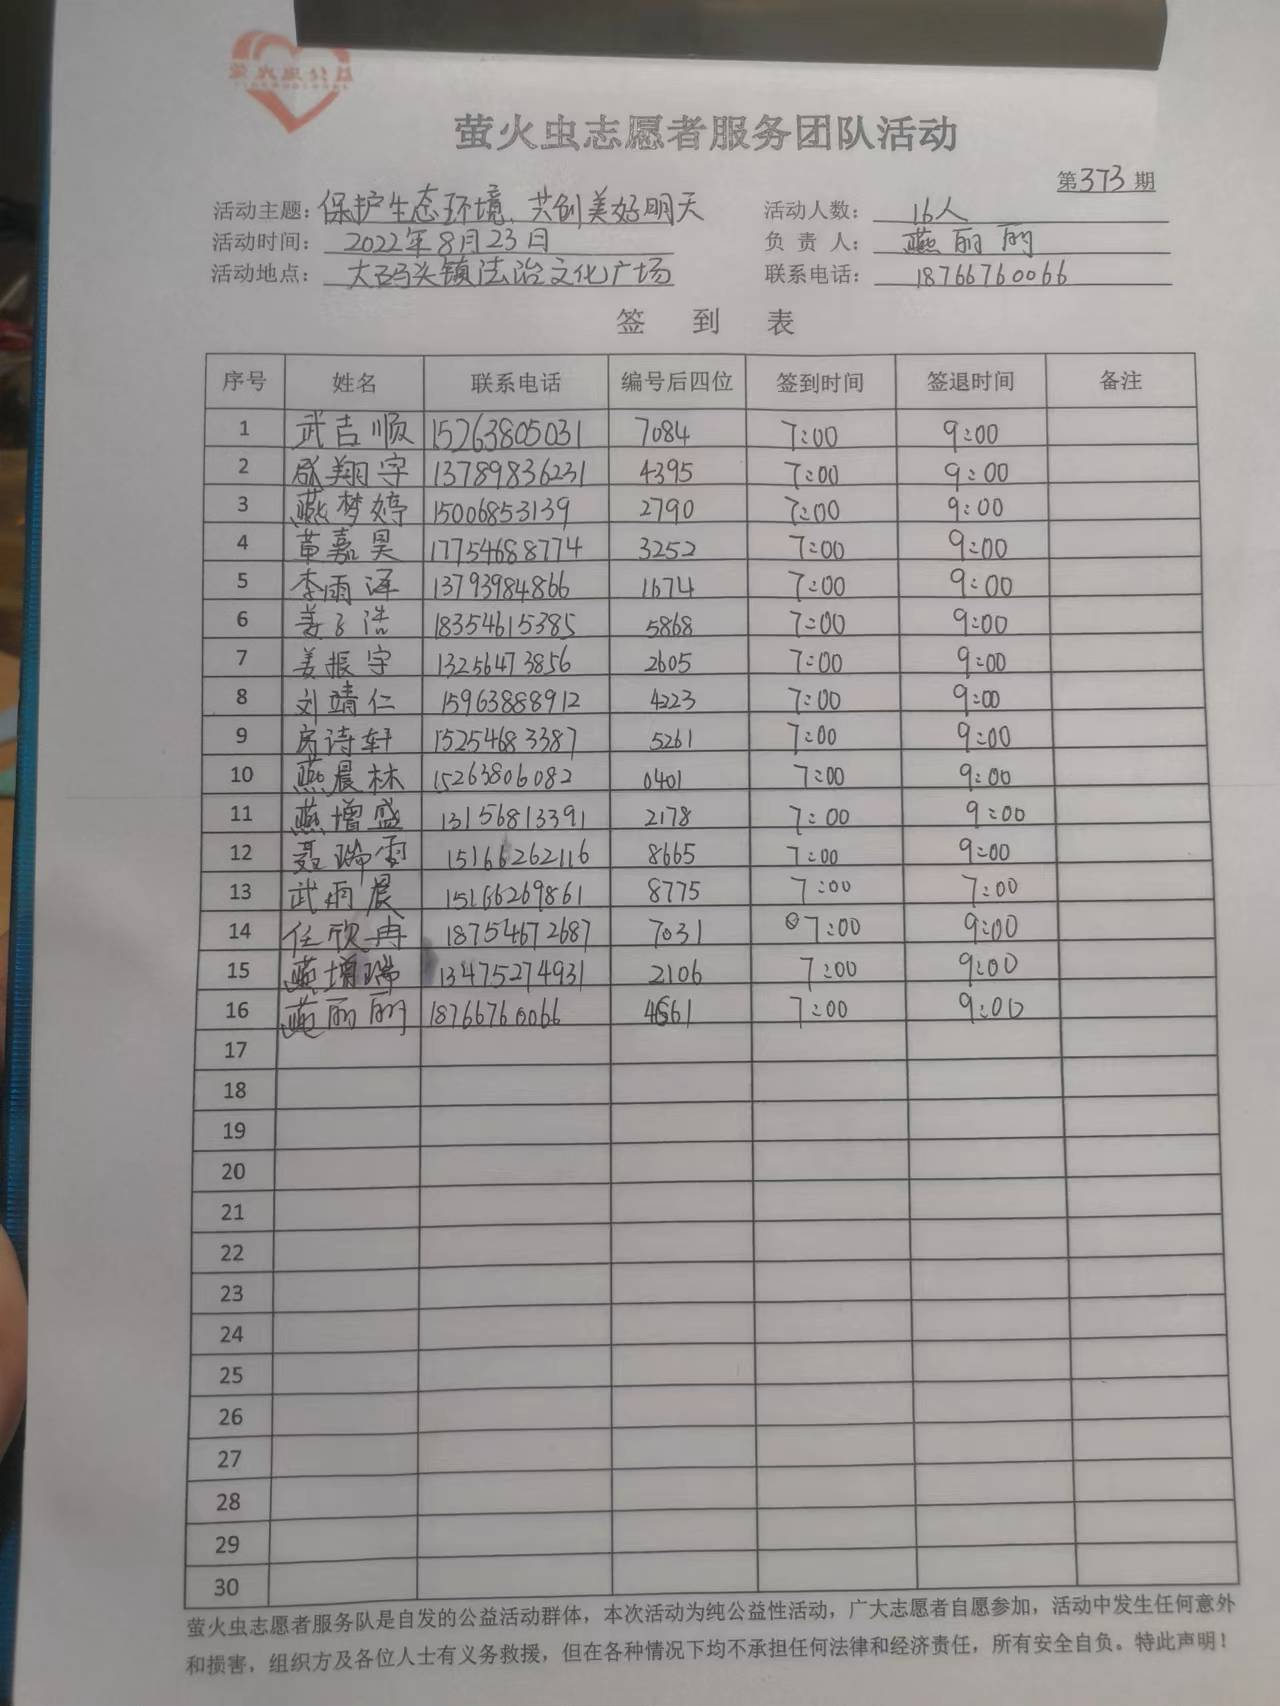 萤火虫志愿者服务团队活动
第373期
活动主题：保护生态环境、共创美好明天 活动人数：16人
活动时间：2022年8月23日 负责人：燕丽丽
活动地点：大码头镇法治文化广场 联系电话：18766760066
签到表
序号 姓名 联系电话 编号后四位 签到时间 签退时间 备注
1 武吉顺 15263805031 7084 7:00 9:00
2 翔宇 13789836231 4395 7:00 9:00
3 燕梦婷 15006853139 2790 7:00 9:00
4 黄嘉昊 17754688774 3252 7:00 9:00
5 李雨泽 13793984866 1674 7:00 9:00
6 姜子浩 18354615385 5868 7:00 9:00
7 姜振宇 13256473856 2605 7:00 9:00
8 刘靖仁 15963888912 4223 7:00 9:00
9 房诗轩 15254683387 5261 7:00 9:00
10 燕晨林 15263806082 0401 7:00 9:00
11 燕增盛 13156813391 2178 7:00 9:00
12 聂瑞雪 15166262116 8665 7:00 9:00
13 武雨晨 15166269861 8775 7:00 7:00
14 任欣冉 18754672687 7031 7:00 9:00
15 燕增瑞 13475274931 2106 7:00 9:00
16 燕丽丽 18766760066 4561 7:00 9:00
17
18
19
20
21
22
23
24
25
26
27
28
29
30
萤火虫志愿者服务队是自发的公益活动群体，本次活动为纯公益性活动，广大志愿者自愿参加，活动中发生任何意外
和损害，组织方及各位人士有义务救援，但在各种情况下均不承担任何法律和经济责任，所有安全自负。特此声明！